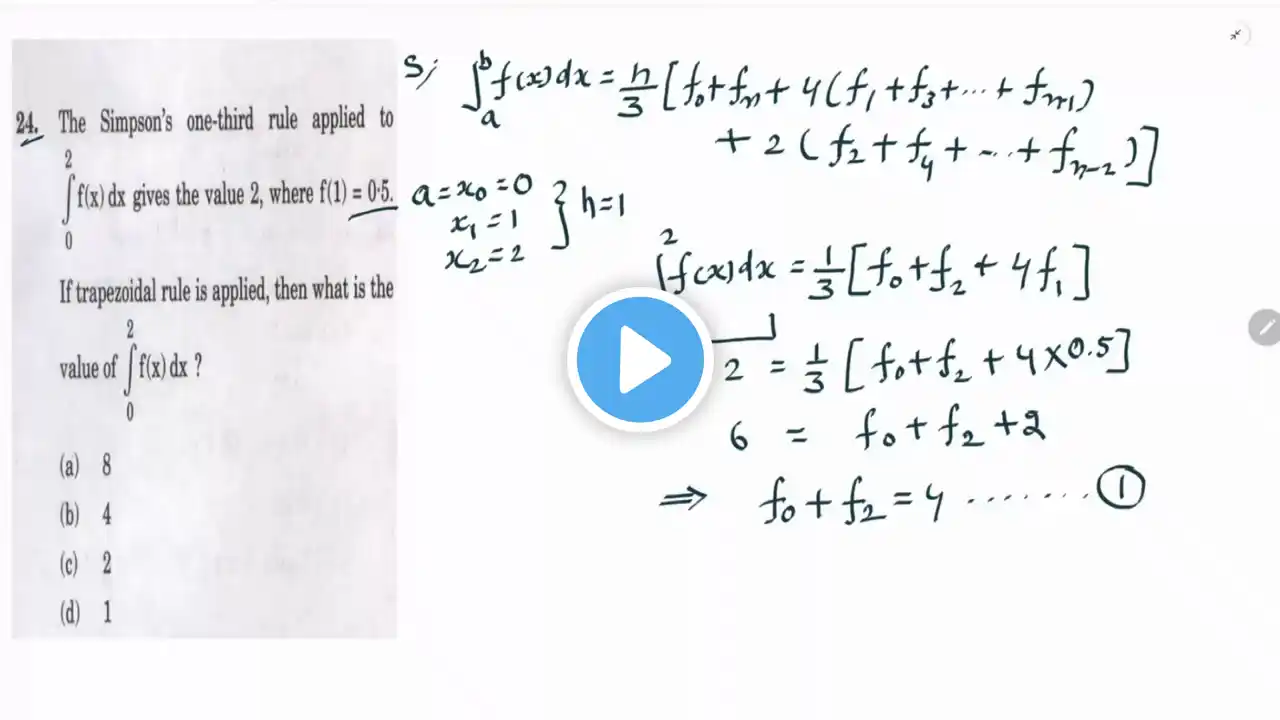 24. The Simpson's one-third rule applied to
2
∫ f(x) dx gives the value 2, where f(1) = 0·5.
0
If trapezoidal rule is applied, then what is the
2
value of ∫ f(x) dx ?
0
(a) 8
(b) 4
(c) 2
(d) 1
S;
∫_a^b f(x)dx = h/3 [f₀+fₙ+ 4(f₁+f₃+...+ fₙ₋₁)
+ 2 (f₂+f₄+...+fₙ₋₂)]
a=x₀=0
x₁=1
x₂=2
} h=1
2
∫f(x)dx = 1/3 [f₀+f₂+ 4f₁]
2 = 1/3 [f₀+f₂+ 4×0.5]
6 = f₀+f₂+2
⇒ f₀+f₂=4 ....... ①